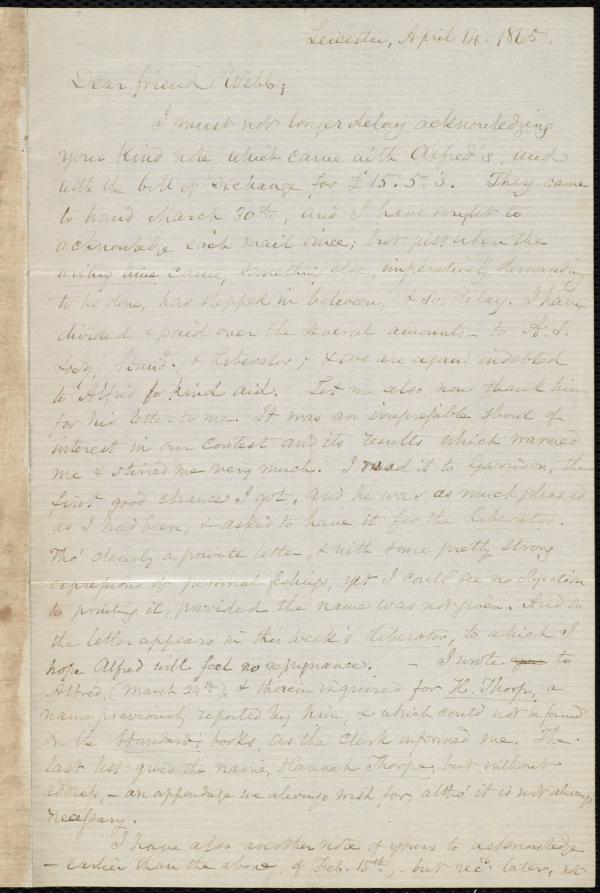 Leicester, April 14. 1865.
Dear friend Webb;
I must not longer delay acknowledging
your kind note which came with Alfred's, and
with the bill of exchange for £15.5.3. They came
to hand March 30th, and I have sought to
acknowledge each mail since; but just when the
writing time came, something else, imperatively demanding
to be done, has stepped in between, & so, delay. I have
divided & paid over the several amounts to A. S.
Socy, Stand. & Liberator; & we are again indebted
to Alfred for kind aid. Let me also now thank him
for his letter to me. It was an irrepressible shout of
interest in our contest and its results which warmed
me & stirred me very much. I read it to Garrison, the
first good chance I got, and he was as much pleased
as I had been, & asked to have it for the Liberator.
Tho' clearly a private letter, & with some pretty strong
expressions of personal feelings, yet I could see no objection
to printing it, provided the name was not given. And so
the letter appears in this week's Liberator, to which I
hope Alfred will feel no repugnance. – I wrote to
Alfred, (March 24th), & therein inquired for H. Thorp, a
name previously reported by him, & which could not be found
on the Standard books, as the clerk informed me. The
last list gives the name, Hannah Thorpe, but without
address, – an appendage we always wish for, altho' it is not always
necessary.
I have also another note of yours to acknowledge
– earlier than the above, of Feb. 15th, – but recd. later, not